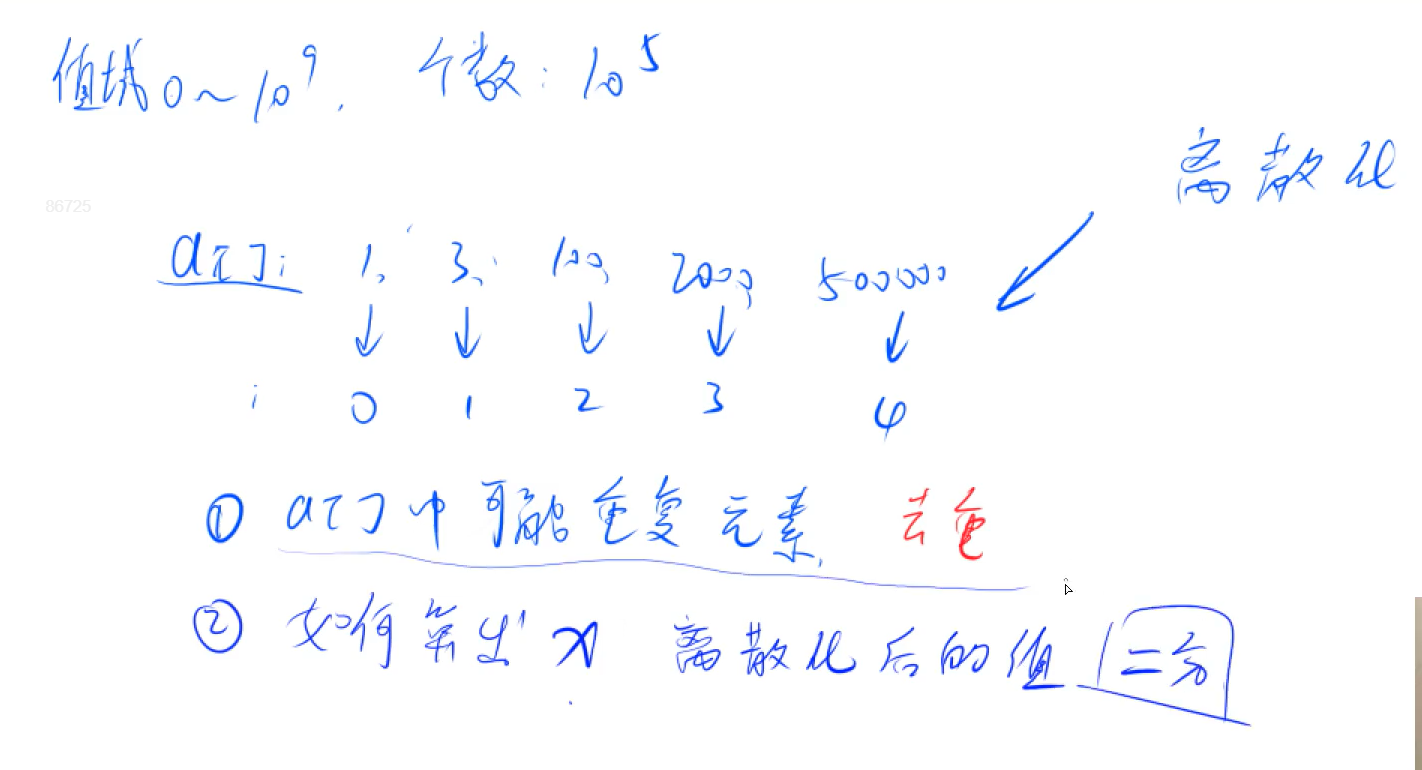 值域0~10^9, 个数: 10^5
离散化
86725
a[]: 1, 3, 100, 2000, 500000
↓ ↓ ↓ ↓ ↓
i 0 1 2 3 4
① a[]中可能重复元素, 去重
② 如何算出 x 离散化后的值 二分